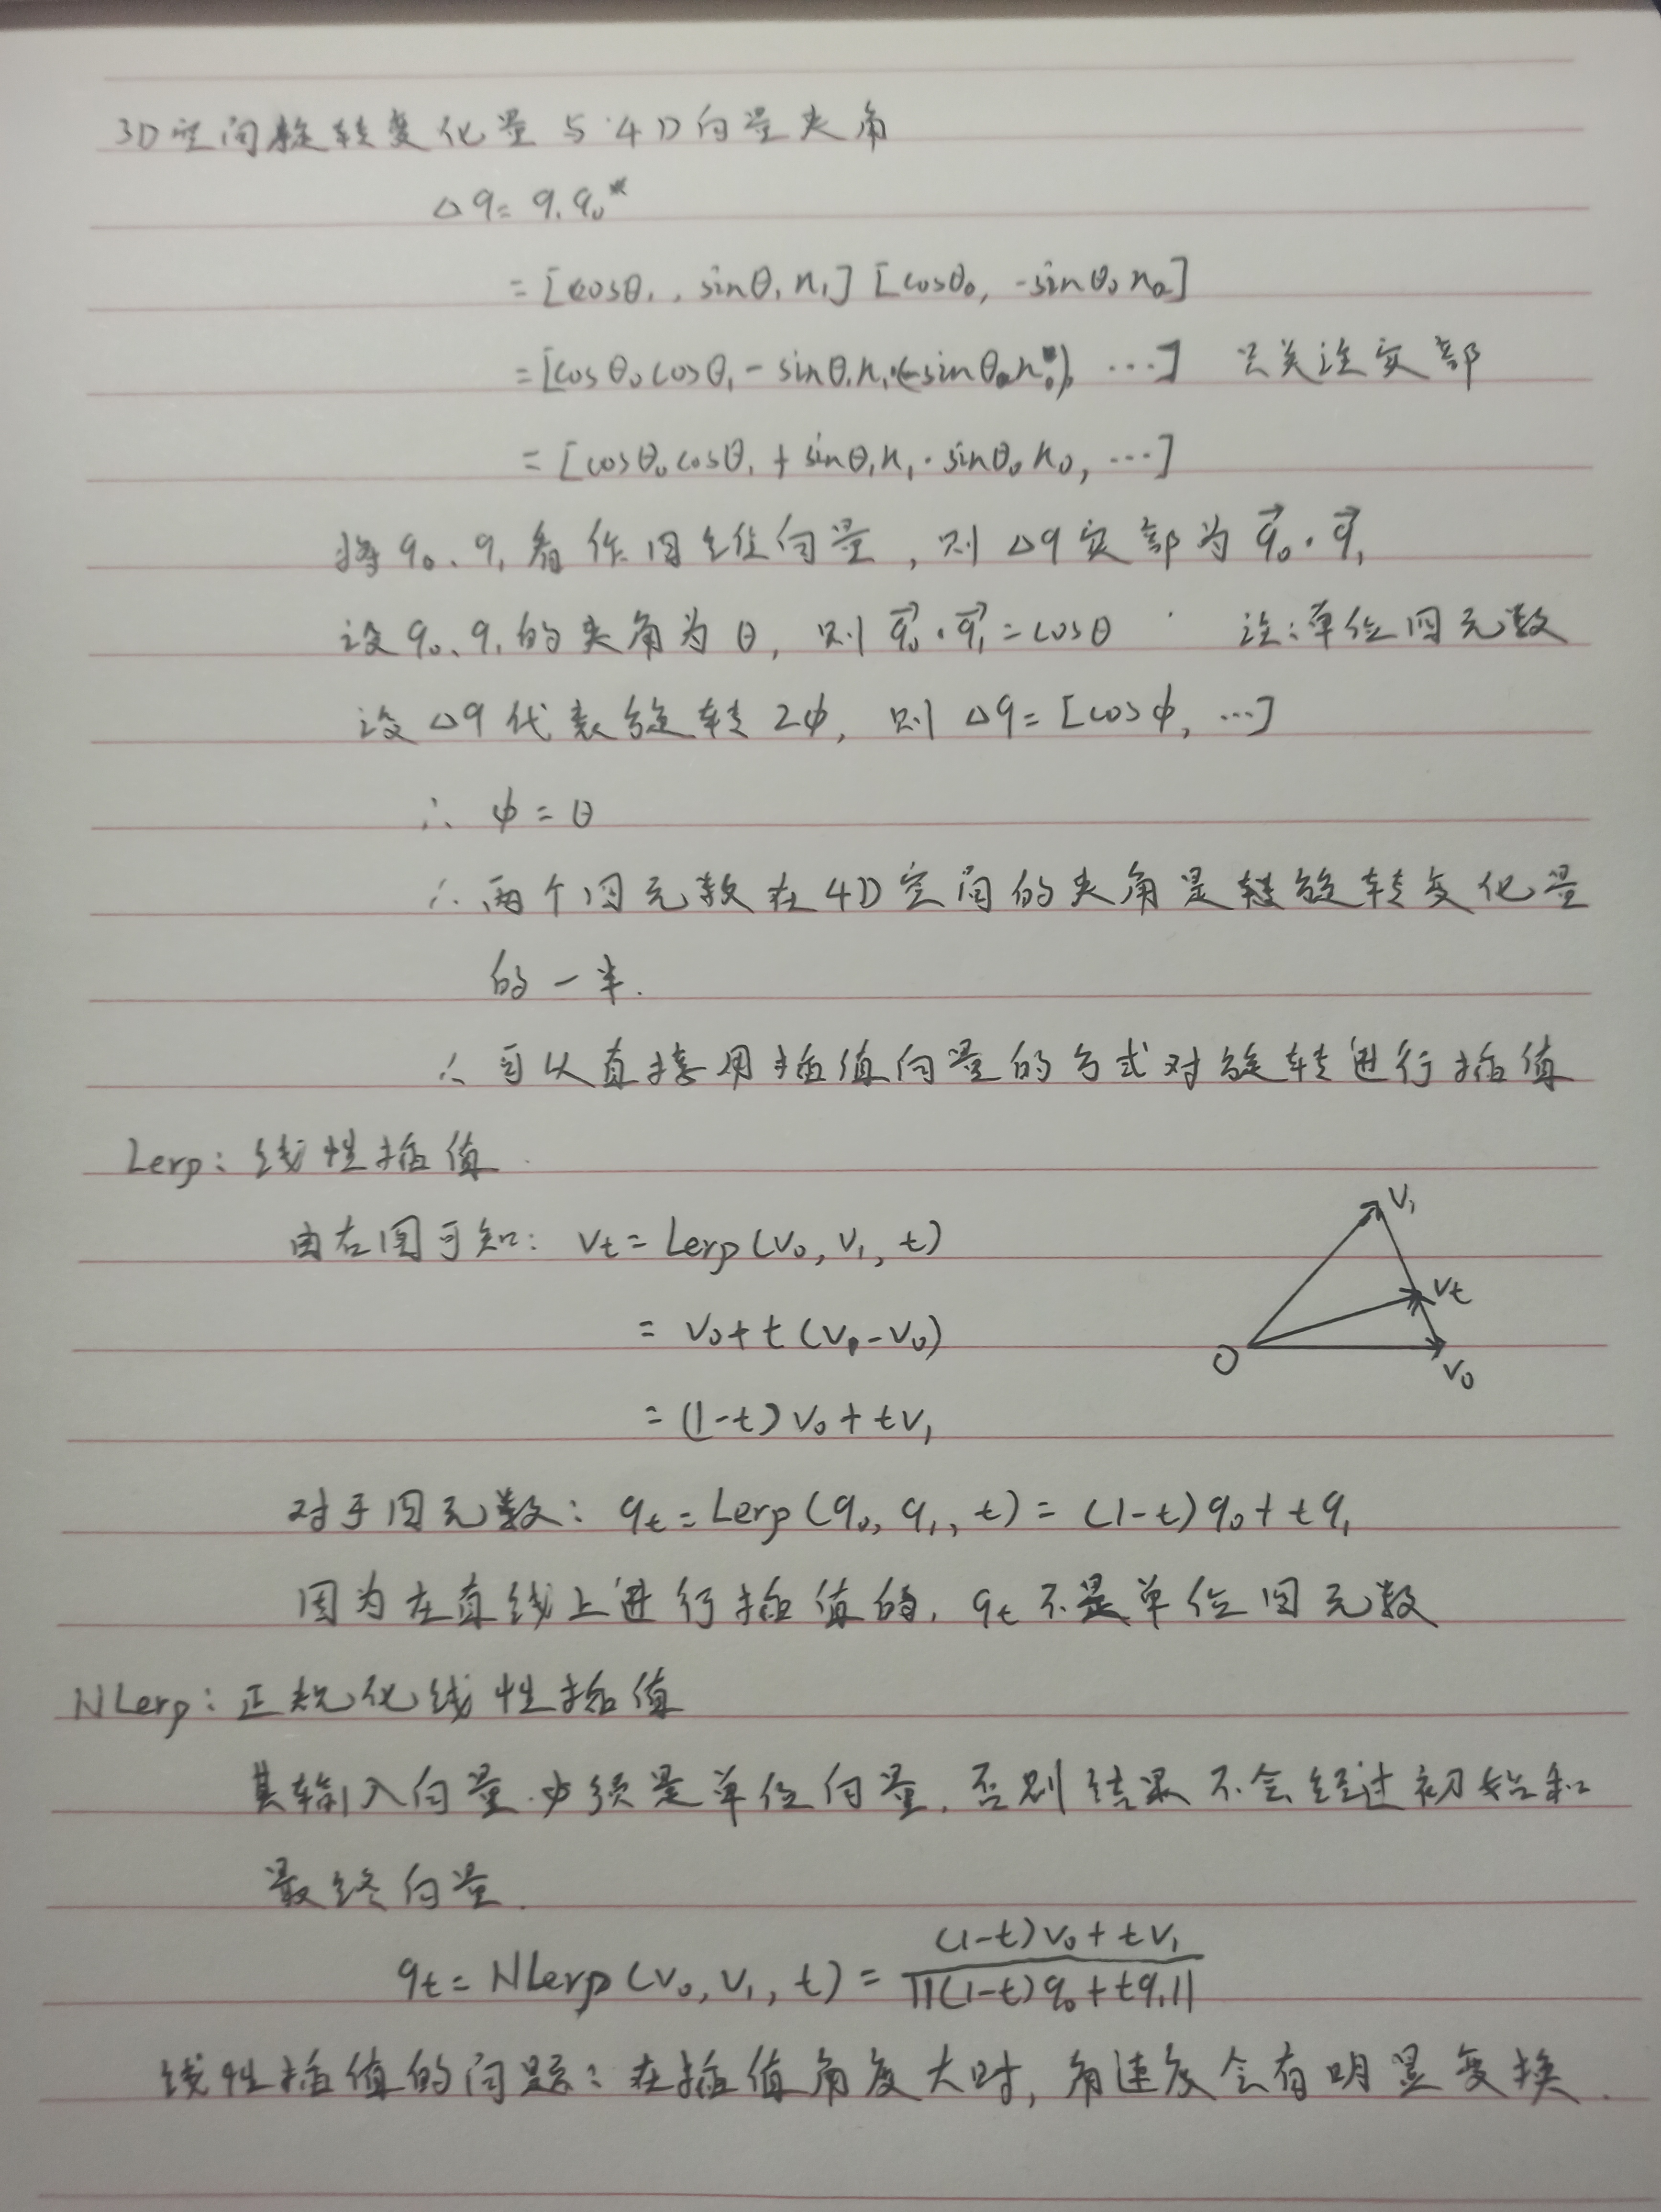 3D空间旋转变化量与4D向量夹角
Δq = q₁q₀*
= [cosθ₁, sinθ₁n₁] [cosθ₀, -sinθ₀n₀]
= [cosθ₀cosθ₁ - sinθ₁n₁·(-sinθ₀n₀), ...] 只关注实部
= [cosθ₀cosθ₁ + sinθ₁n₁·sinθ₀n₀, ...]
将q₀、q₁看作四维向量,则Δq实部为q⃗₀·q⃗₁
设q₀、q₁的夹角为θ,则q⃗₀·q⃗₁=cosθ 注:单位四元数
设Δq代表旋转2φ,则Δq=[cosφ, ...]
∴ φ = θ
∴ 两个四元数在4D空间的夹角是旋转变化量
的一半.
∴ 可以直接用插值向量的方式对旋转进行插值
Lerp: 线性插值
V₁
由右图可知: Vt = Lerp(V₀, V₁, t)
Vt
= V₀+t(V₁-V₀)
O
V₀
= (1-t)V₀+tV₁
对于四元数: qt = Lerp(q₀, q₁, t) = (1-t)q₀+tq₁
因为在直线上进行插值的, qt不是单位四元数
NLerp: 正规化线性插值
其输入向量必须是单位向量,否则结果不会经过初始和
最终向量.
qt = NLerp(V₀, V₁, t) = (1-t)V₀+tV₁ / ||(1-t)q₀+tq₁||
线性插值的问题: 在插值角度大时,角速度会有明显变换.